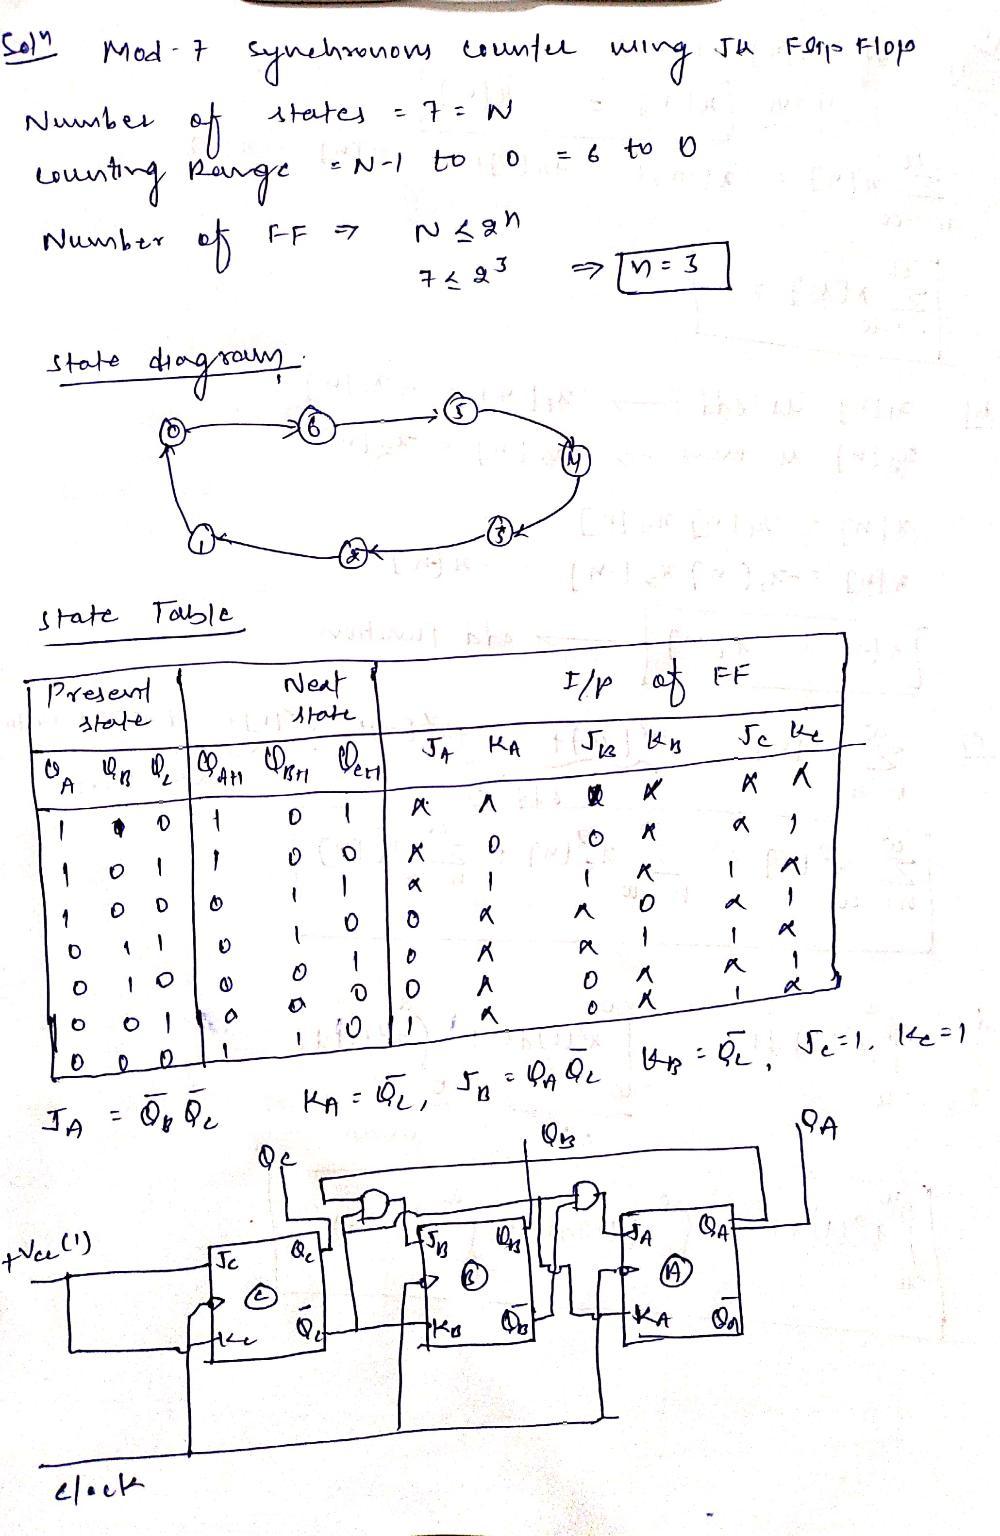 Solⁿ Mod-7 synchronous counter using JK Flip Flop
Number of states = 7 = N
Counting Range = N-1 to 0 = 6 to 0
Number of FF ⇒ N ≤ 2ⁿ
7 ≤ 2³ ⇒ n = 3
state diagram:
0 6 5
4
1 2 3
state Table
Present state Next state I/p of FF
Q_A Q_B Q_C Q_A+1 Q_B+1 Q_C+1 J_A K_A J_B K_B J_C K_C
X X X X X X
1 1 0 1 0 1 X 0 0 X X 1
1 0 1 1 0 0 X 1 1 X 1 X
1 0 0 0 1 1 0 X X 0 X 1
0 1 1 0 1 0 0 X X 1 1 X
0 1 0 0 0 1 0 X 0 X X 1
0 0 1 0 0 0 1 X 0 X 1 X
0 0 0 1 1 0
J_A = Q̄_B Q̄_C K_A = Q̄_C, J_B = Q_A Q̄_C K_B = Q̄_C, J_C = 1, K_C = 1
Q_C Q_B Q_A
+Vcc (1)
J_C Q_C J_B Q_B J_A Q_A
C B A
K_C Q̄_C K_B Q̄_B K_A Q̄_A
clock